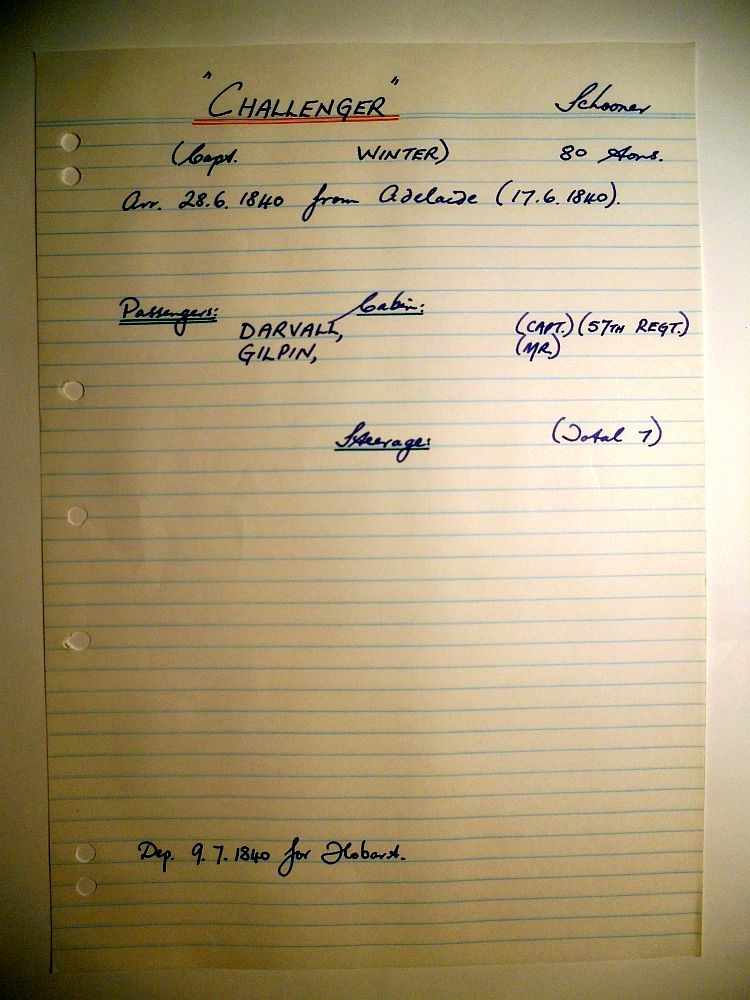 "CHALLENGER" Schooner
(Capt. WINTER) 80 tons.
Arr. 28.6.1840 from Adelaide (17.6.1840).
Passengers: Cabin:
DARVALL, (CAPT.) (57TH REGT.)
GILPIN, (MR.)
Steerage: (Total 7)
Dep. 9.7.1840 for Hobart.